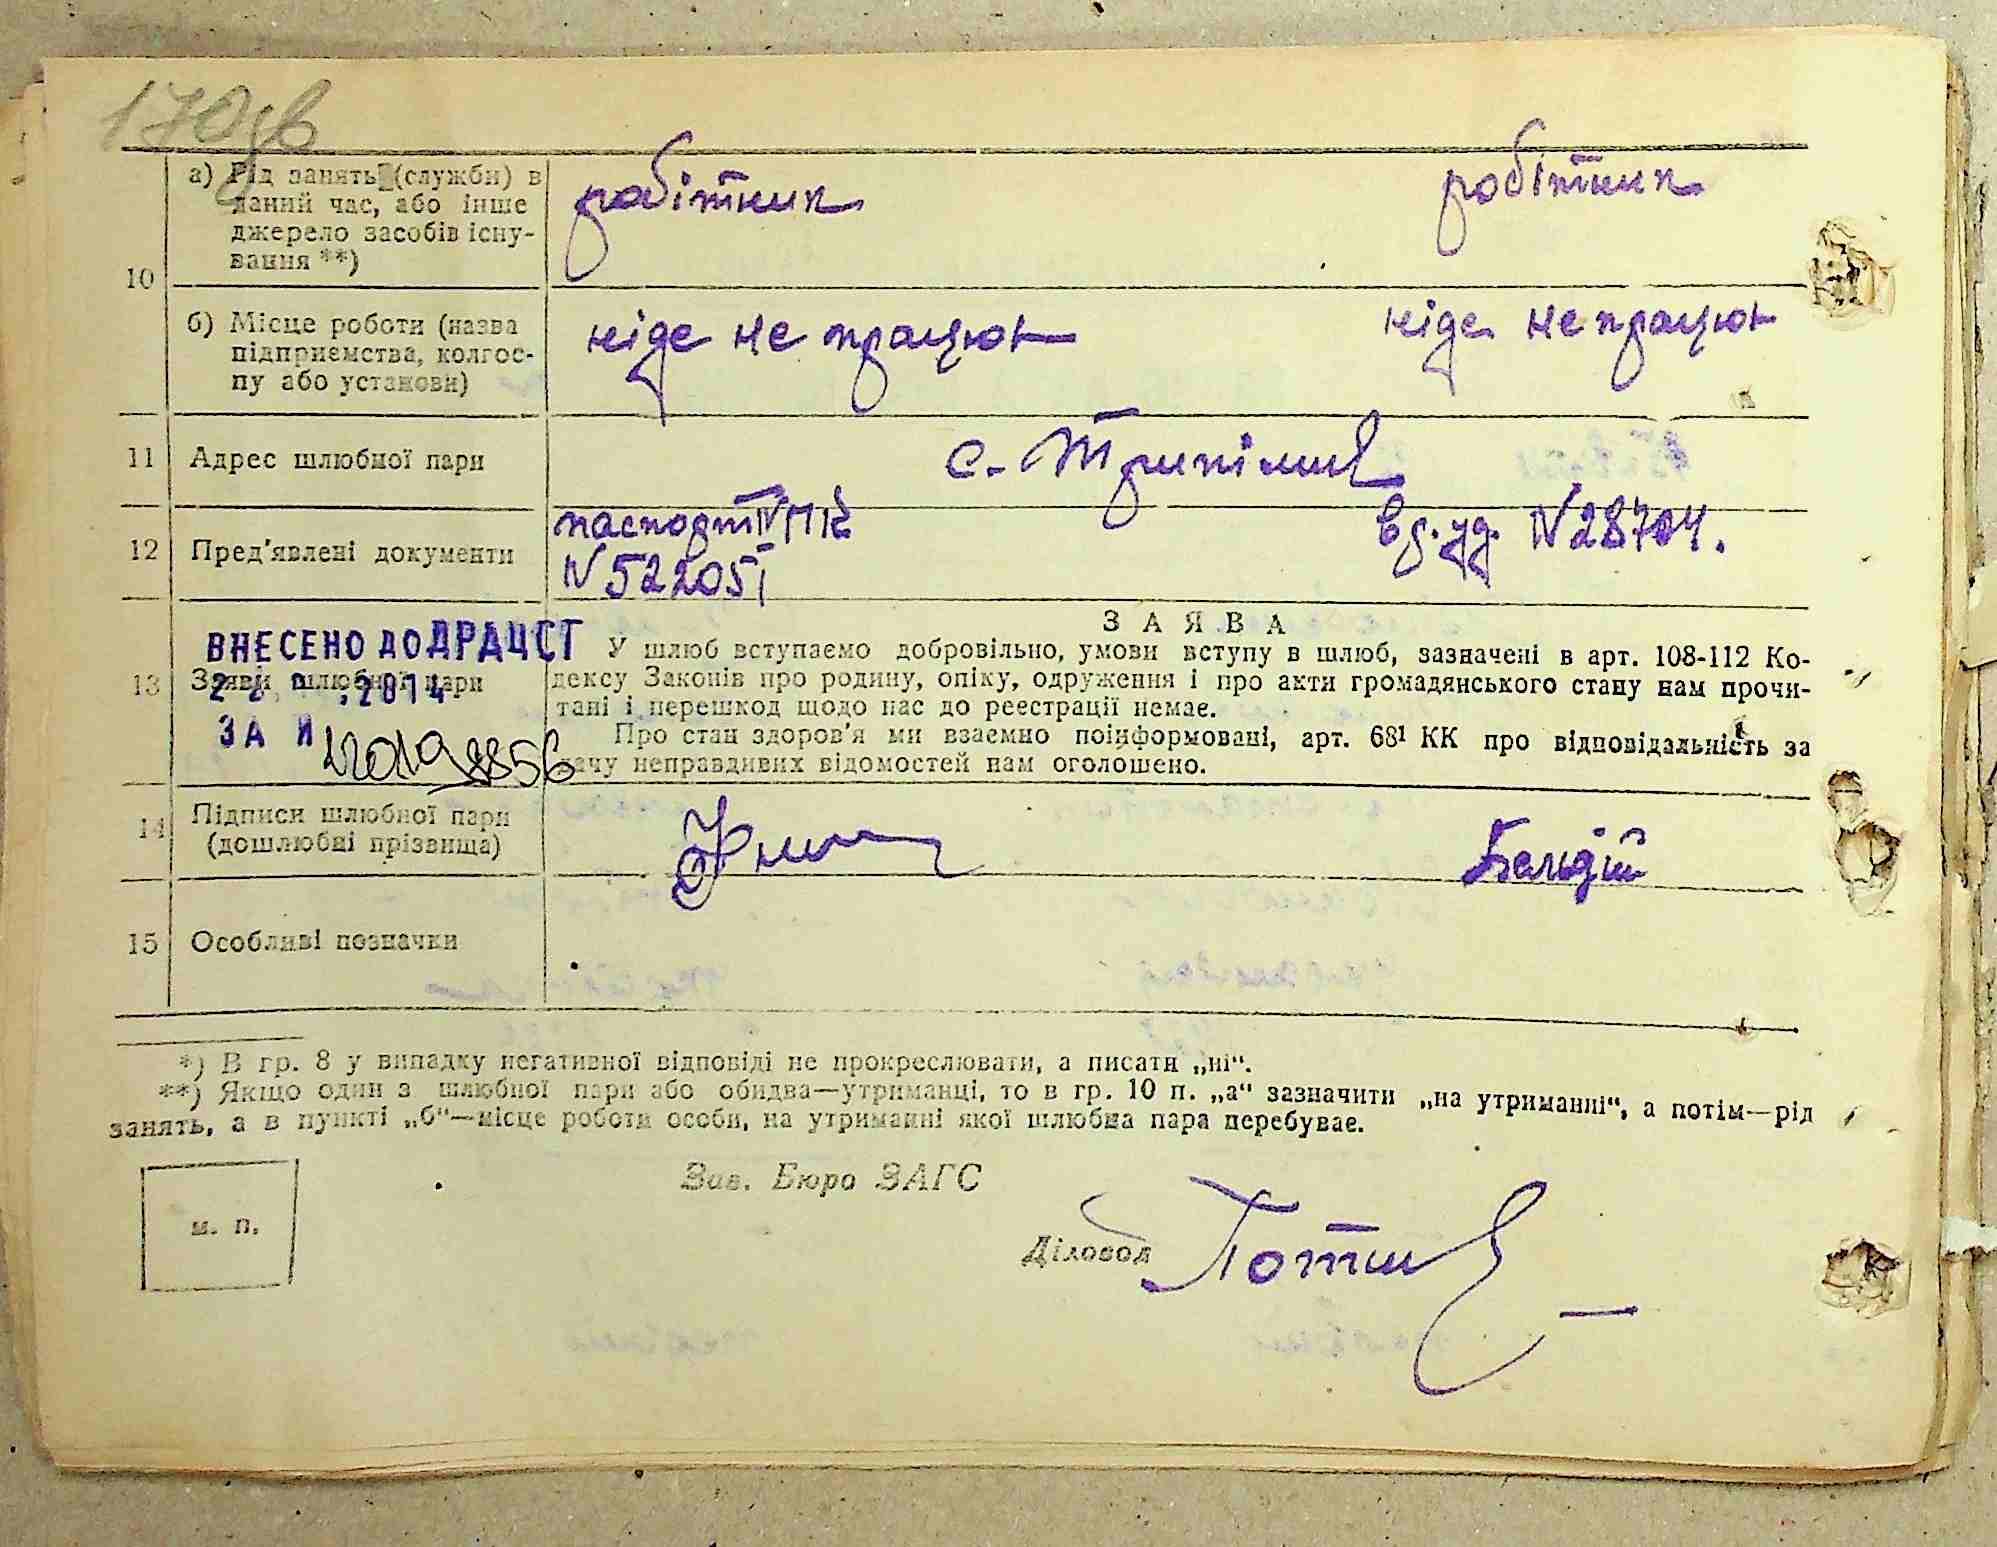 170зв
10
а) Рід занять (служби) в
даний час, або інше
джерело засобів існу-
вання **)
робітник
робітник
б) Місце роботи (назва
підприємства, колгос-
пу або установи)
ніде не працює
ніде не працює
11
Адрес шлюбної пари
с. Трипілля
12
Пред'явлені документи
паспорт IV МК
N 522051
N 28704.
13
Заяви шлюбної пари
ВНЕСЕНО ДО ДРАЦСГ
2014
ЗА N
З А Я В А
У шлюб вступаємо добровільно, умови вступу в шлюб, зазначені в арт. 108-112 Ко-
дексу Законів про родину, опіку, одруження і про акти громадянського стану нам прочи-
тані і перешкод щодо нас до реєстрації немає.
Про стан здоров'я ми взаємно поінформовані, арт. 68¹ КК про відповідальність за
дачу неправдивих відомостей нам оголошено.
14
Підписи шлюбної пари
(дошлюбні прізвища)
15
Особливі позначки
*) В гр. 8 у випадку негативної відповіді не прокреслювати, а писати „ні“.
**) Якщо один з шлюбної пари або обидва—утриманці, то в гр. 10 п. „а“ зазначити „на утриманні“, а потім—рід
занять, а в пункті „б“—місце роботи особи, на утриманні якої шлюбна пара перебуває.
м. п.
Зав. Бюро ЗАГС
Діловод